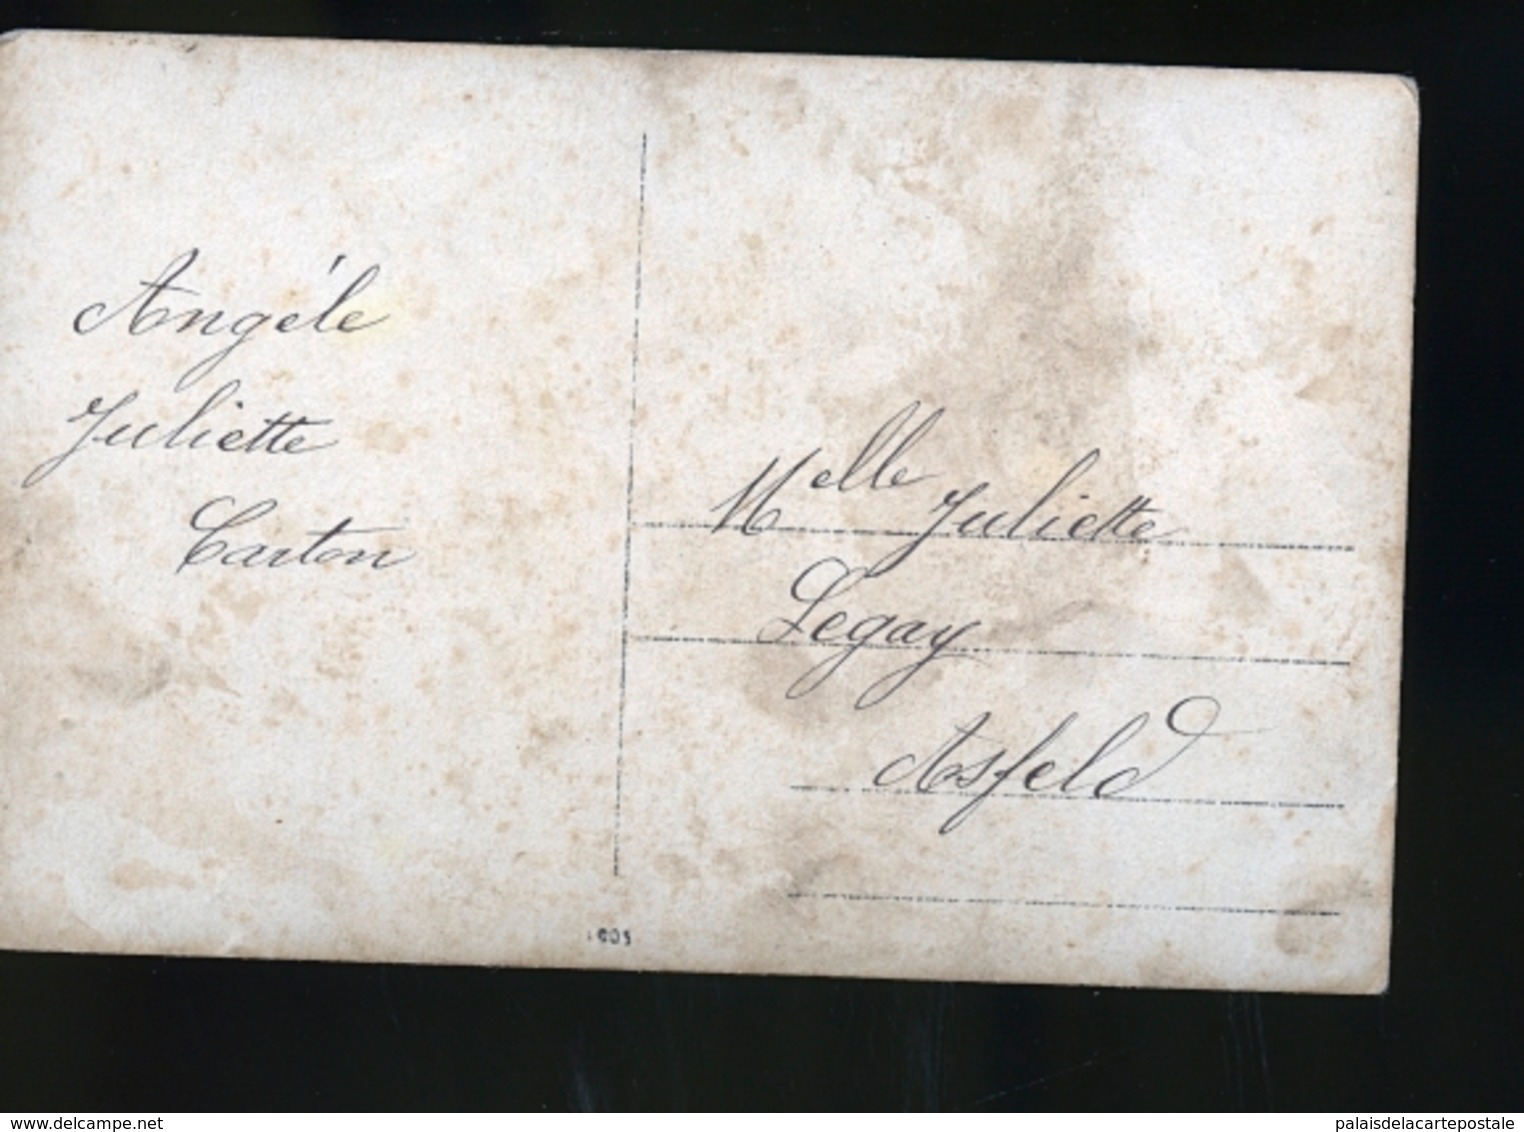 Angéle
Juliette
Carton
Melle Juliette
Legay
Asfeld
www.delcampe.net
palaisdelacartepostale